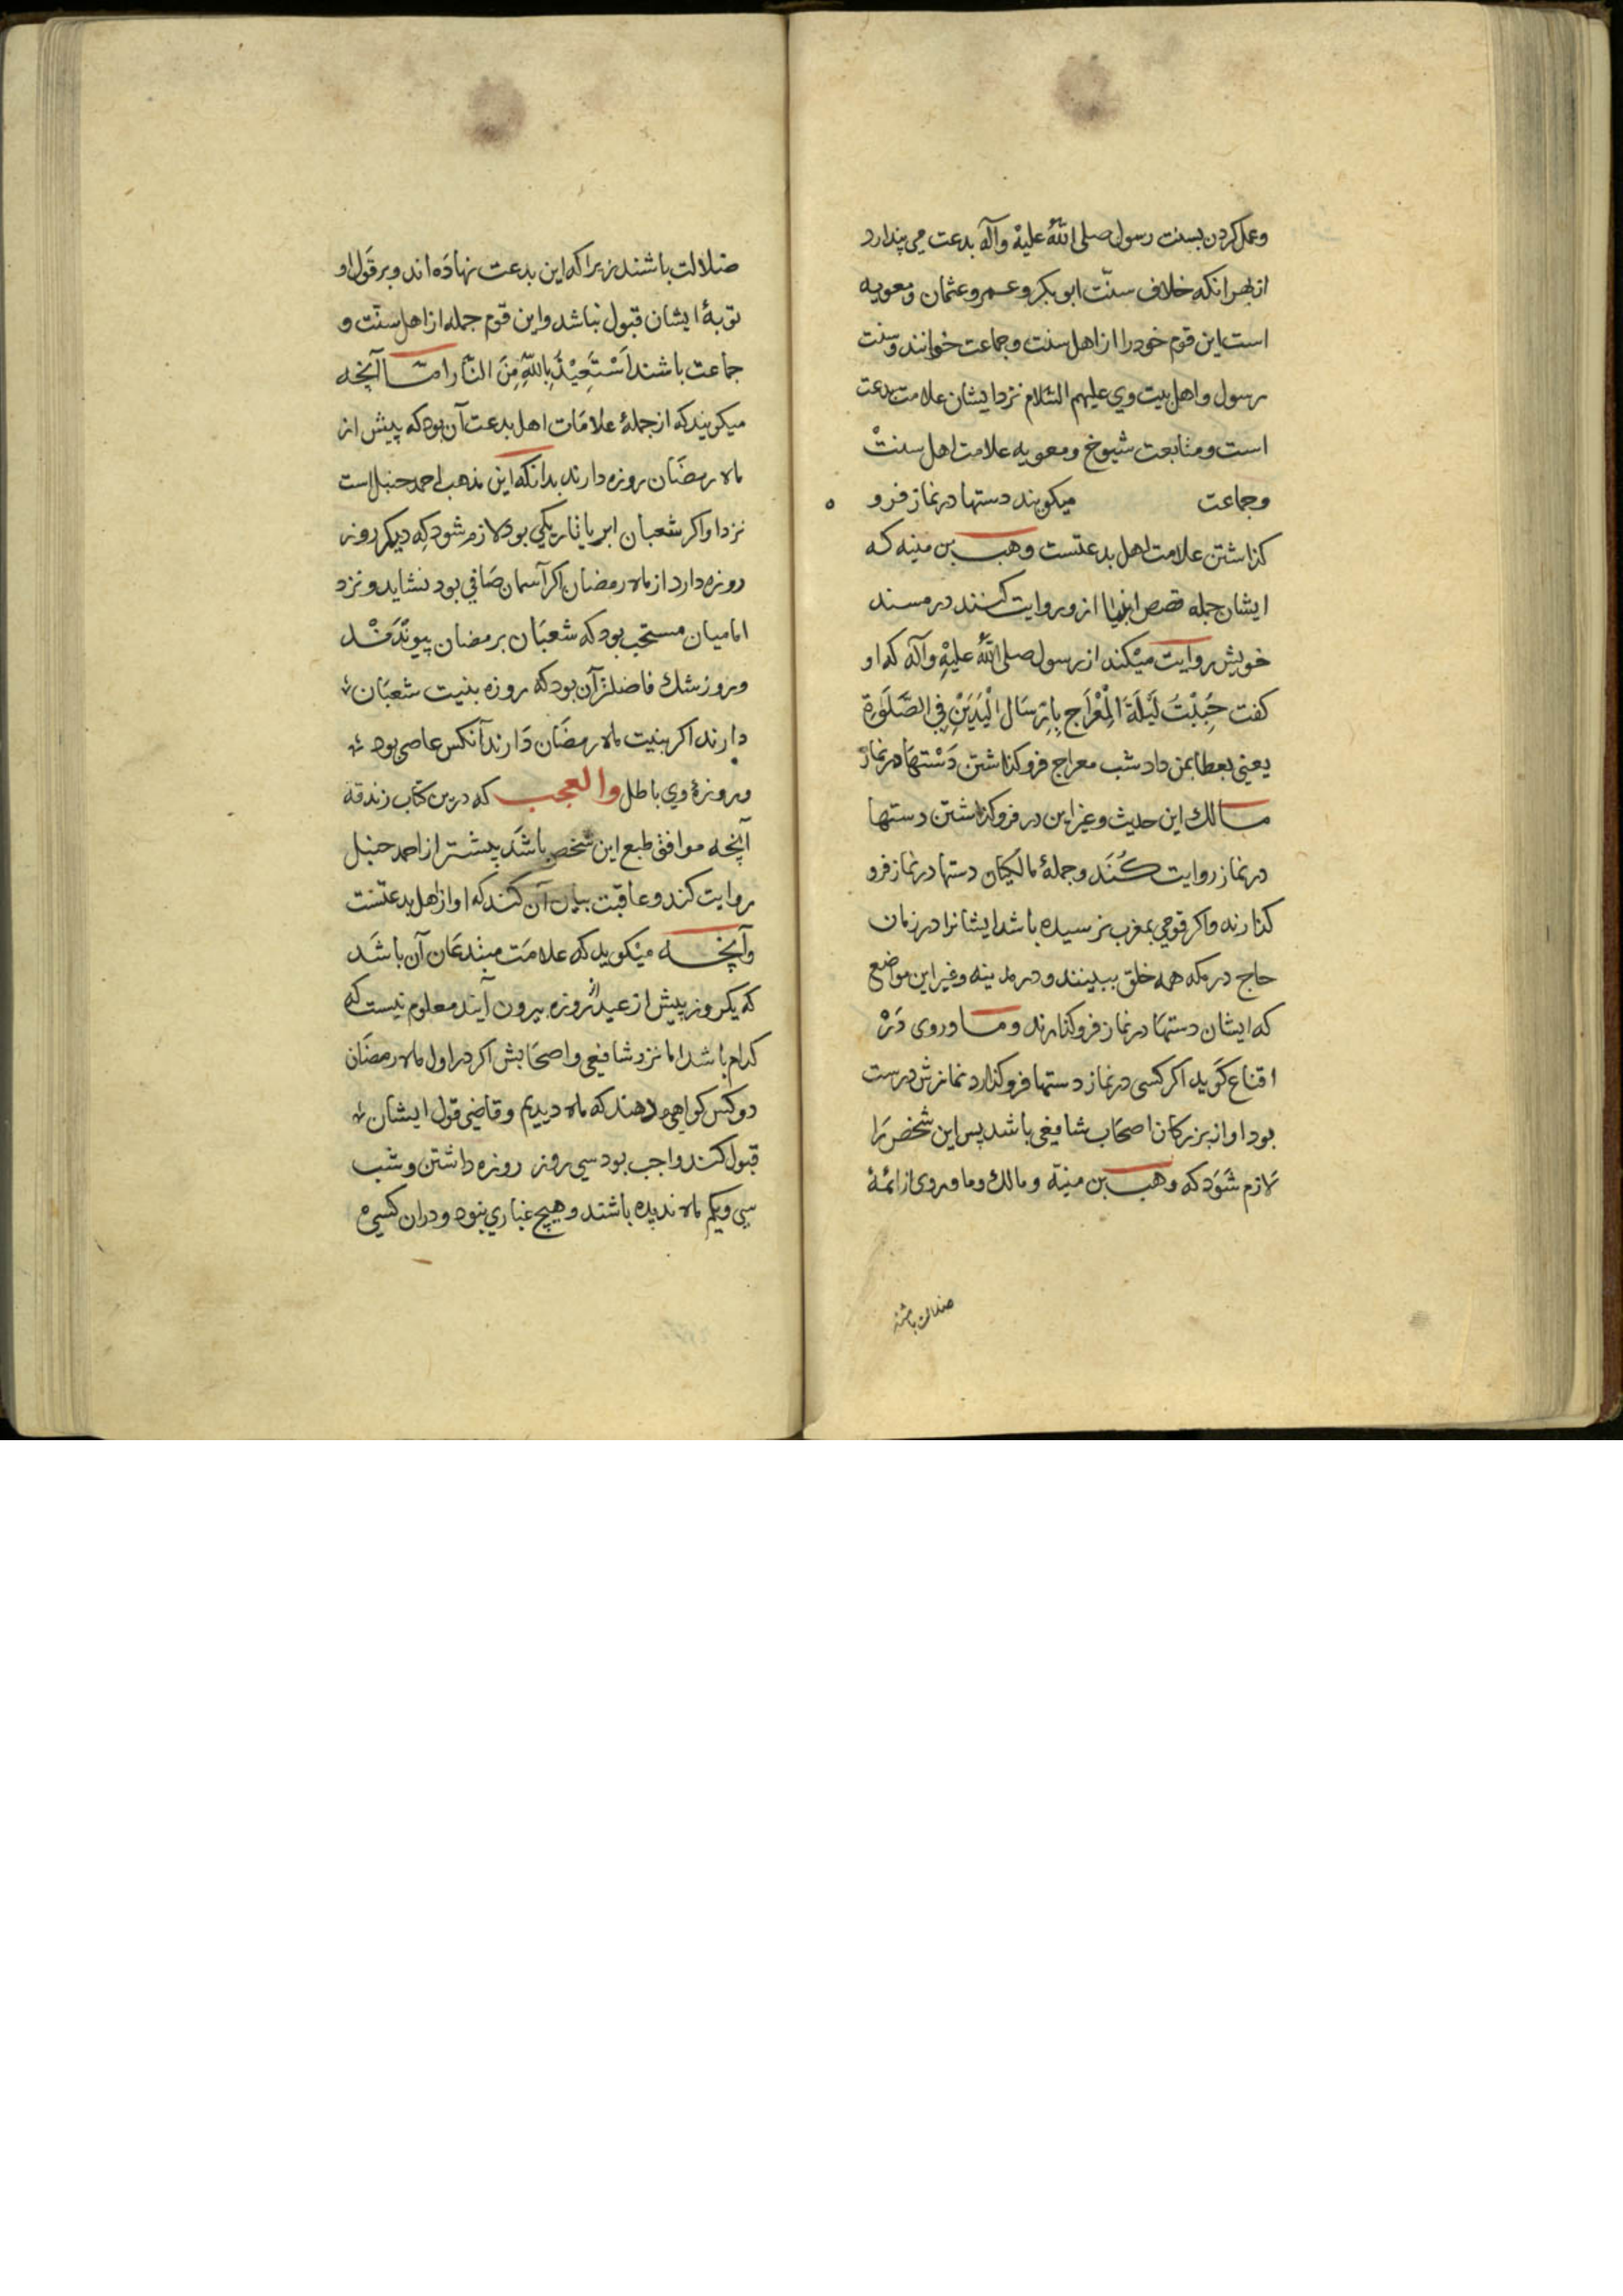 وعمل کردن بسنت رسول صلی اللهُ علیهْ وآله بدعت می پندارد
از بهر انکه خلاف سنّت ابو بکر و عمر و عثمان و معویه
است این قوم خود را از اهل سنت و جماعت خوانند و سنت
رسول و اهل بیت وی علیهم السّلام نزد ایشان علامت بدعت
است و متابعت شیوخ و معویه علامت اهل سنتْ
و جماعت میکویند دستها در نماز فرو ه
کذاشتن علامت اهل بدعتست وهب بن منبه که
ایشان جمله قصص انبیا ازو روایت کنند در مسند
خویش روایت میْکند از رسول صلی اللهُ علیْهِ وآله که او
کفت حُبِبْتُ لَیْلَةَ الْمِعْرَاجِ بِاِرْسَالِ الْیَدَیْنِ فِی الصَّلَوةِ
یعنی بعطا بمن داد شب معراج فرو کذاشتن دَسْتهَا در نماز
مالك این حدیث و غیر این در فرو کذاشتن دستها
در نماز روایت کُنَد و جملهٔ مالکیان دستها در نماز فرو
کذارند و اکر قومی بمغرب نرسیده باشد ایشانرا در زمان
حاج در مکه همه خلق ببینند و در مدینه و غیر این مواضع
که ایشان دستهَا در نماز فرو کذارند و ماوردی دَرْ
اقناع کَوید اکر کسی در نماز دستها فرو کذارد نمازش درست
بود او از بزرکان اصحَاب شافیعی باشد پس این شخص رَا
لازم شَوَد که وهب بن منبة و مالك و ماوردی از ائمهٔ
ضلالت باشند
ضلالت باشند زیرا که این بدعت نهادَه اند و بر قَول او
توبهٔ ایشان قبول نباشد و این قوم جمله از اهل سنّت و
جماعت باشند اَسْتَعِیْذُ بِاللهِ مِنَ النّار امّا آنچه
میکویند که از جملهٔ علامَات اهل بدعت آن بود که پیش از
ماه رمضَان روزه دارند بدانکه این مذهب احمد حنبل است
نزد او اکر شعبان ابر یا تاریکی بود لازم شود که دیکر روز
روزه دارد از ماه رمضان اکر آسمان صَافی بود نشاید و نزد
امامیان مستحب بود که شعبَان برمضان پیونْدَنْد
و روز شك فاضلتر آن بود که روزه بنیت شعبَان
دارند اکر بنیت ماه رمضَان دَارند آنکس عاصی بود
و روزهٔ وی باطل والعجب که درین کتاب زندقه
آنچه موافق طبع این شخص باشَد بیشتر از احمد حنبل
روایت کند و عاقبت بیان آن کند که او از اهل بدعتست
وآنچه میْکوید که علامَت مبْتدعَان آن باشَد
که یکروز پیش از عید از روزه بیرون آیند معلوم نیست که
کدام باشد اما نزد شافیعی و اصحَابش اکر در اول ماه رمضَان
دو کس کواهی دهند که ماه دیدیم و قاضی قول ایشان
قبول کند واجب بود سی روز روزه داشتن و شب
سی و یکم ماه ندیده باشند و هیچ غباری نبود و دران کسی